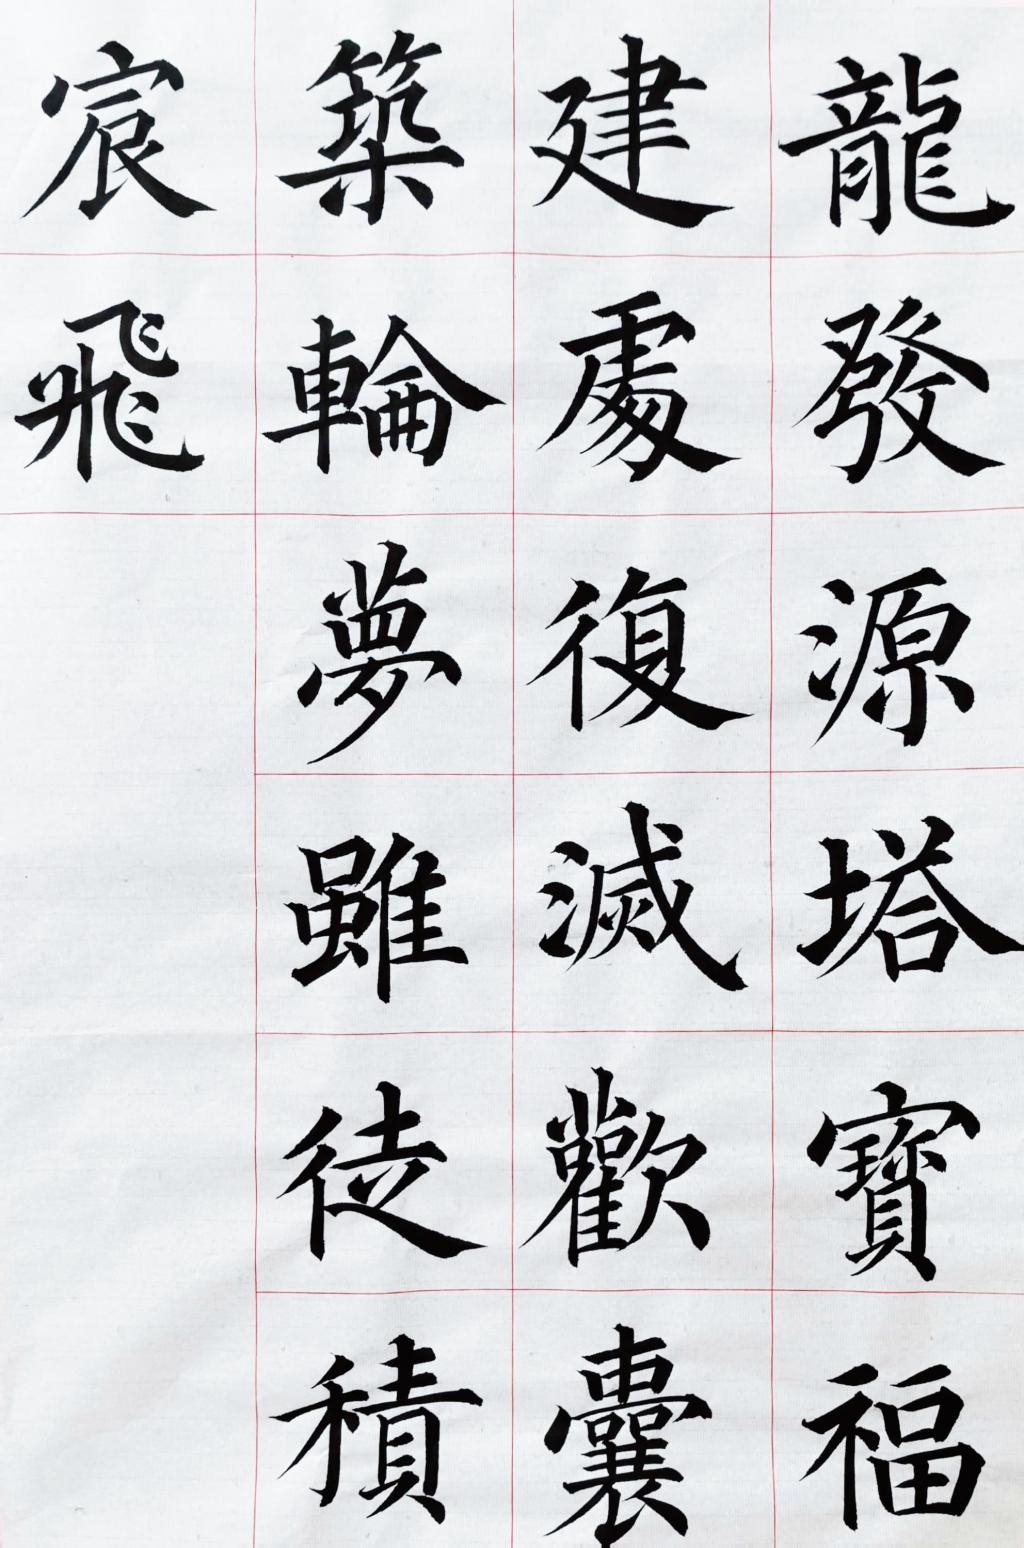 龍發源塔寶福
建處復滅歡囊
築輪夢雖徒積
宸飛